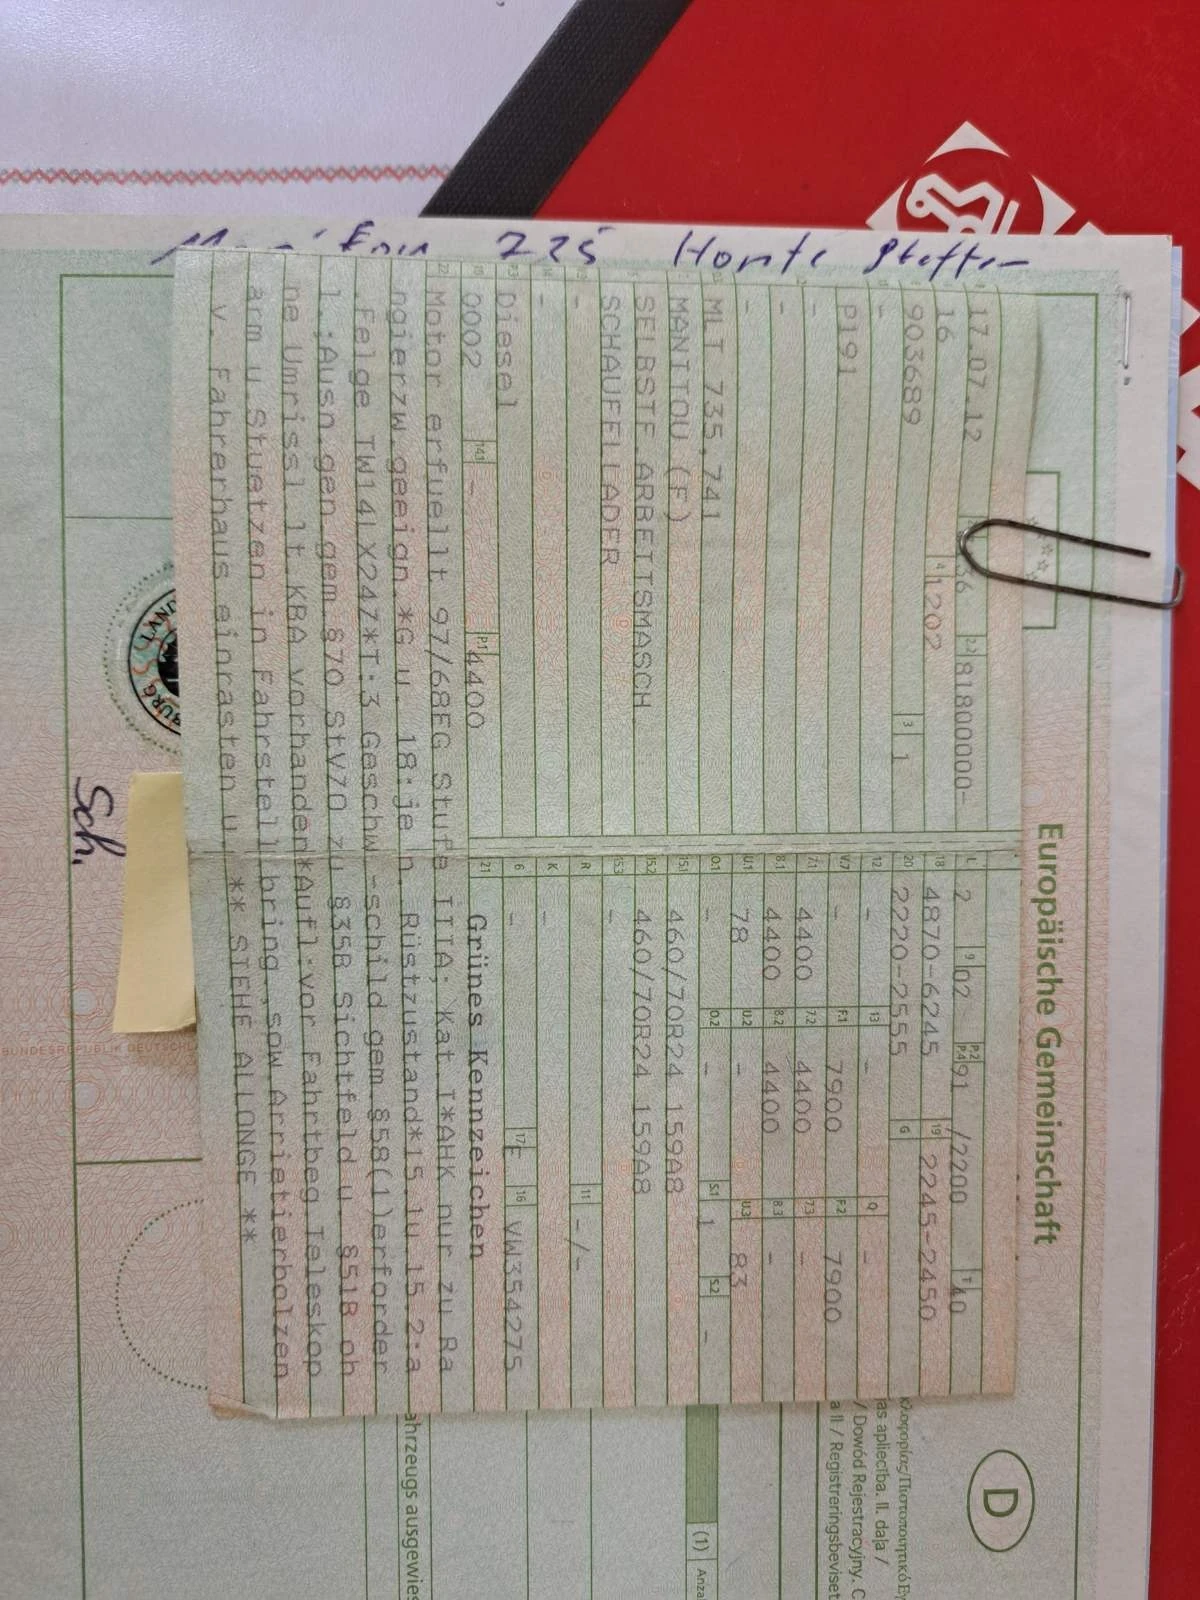 Europäische Gemeinschaft
D
17.07.12
2.2 81800000-
16
4 1202
903689
3 1
-
P191
-
-
-
MLT 735,741
MANITOU (F)
SELBSTF.ARBEITSMASCH.
SCHAUFELLADER
-
-
P.3 Diesel
10 0002 14.1 - P.1 4400
L 2 9 02 P.2 P.4 91 /2200 T 40
18 4870-6245 19 2245-2450
20 2220-2555 G
12 - 13 - Q -
V.7 - F.1 7900 F.2 7900
7.1 4400 7.2 4400 7.3 -
8.1 4400 8.2 4400 8.3 -
U.1 78 U.2 - U.3 83
O.1 - O.2 - S.1 1 S.2 -
15.1 460/70R24 159A8
15.2 460/70R24 159A8
15.3 -
R 11 -/-
K -
6 - 17 E 16 VW354275
21 Grünes Kennzeichen
22 Motor erfuellt 97/68EG Stufe IIIA; Kat.I*AHK nur zu Ra
ngierzw.geeign.*G u. 18:je n. Rüstzustand*15.1u.15.2:a
.Felge TW14LX24?*T:3 Geschw.-schild gem.§58(1)erforder
l.;Ausn.gen.gem.§70 StVZO zu §35B Sichtfeld u. §51B oh
ne Umrissl.lt.KBA vorhanden*Aufl:vor Fahrtbeg.Teleskop
arm u.Stuetzen in Fahrstell.bring.,sow.Arretierbolzen
v. Fahrerhaus einrasten u. ** SIEHE ALLONGE **
jas apliecība. II. daļa /
/ Dowód Rejestracyjny. C
a II / Registreringsbeviset
(1) Anza
ahrzeugs ausgewies
Sch.
LAND
BURG